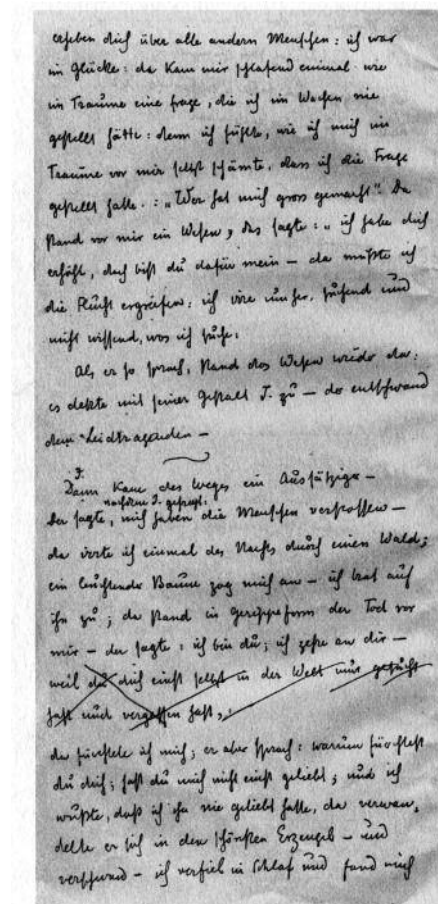 erheben dich über alle andern Menschen: ich war
im Glücke: da kam mir schlafend einmal wie
im Traume eine Frage, die ich im Wachen nie
gestellt hätte: denn ich fühlte, wie ich mich im
Traume vor mir selbst schämte, dass ich die Frage
gestellt hatte.: „Wer hat mich gross gemacht“. Da
stand vor mir ein Wesen, das sagte: „ich habe dich
erhöht, doch bist du dafür mein – da mußte ich
die Flucht ergreifen: ich irre umher, suchend und
nicht wissend, was ich suche.
Als er so sprach, stand das Wesen wieder da:
es deckte mit seiner Gestalt J. zu – da entschwand
dem Leidtragenden –
J.
Dann kam des Weges ein Aussätziger –
nachdem J. gefragt:
der sagte, mich haben die Menschen verstossen –
da irrte ich einmal des Nachts durch einen Wald;
ein leuchtender Baum zog mich an – ich trat auf
ihn zu; da stand in Gerippeform der Tod vor
mir – der sagte: ich bin du; ich zehre an dir –
weil du dich einst selbst in der Welt nur gesucht
hast und vergessen hast,.
da fürchtete ich mich; er aber sprach: warum fürchtest
du dich; hast du mich nicht einst geliebt; und ich
wußte, daß ich ihn nie geliebt hatte, da verwan,
delte er sich in den schönsten Erzengel – und
verschwand – ich verfiel in Schlaf und fand mich